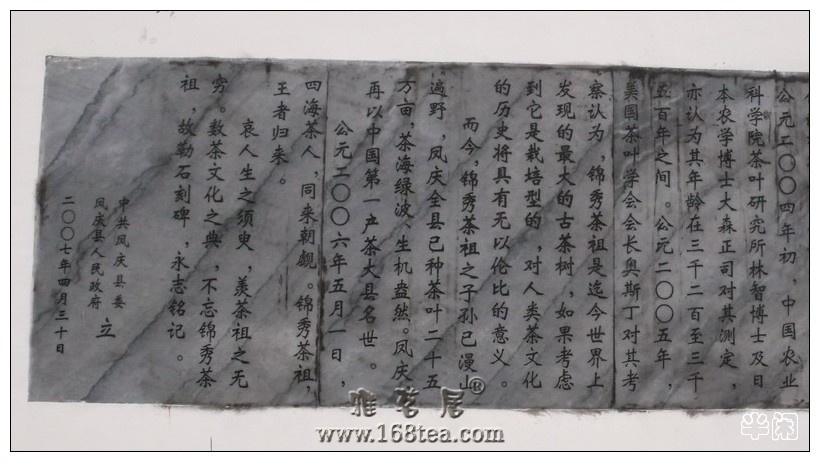 公元二〇〇四年初,中国农业
科学院茶叶研究所林智博士及日
本农学博士大森正司对其测定,
亦认为其年龄在三千二百至三千
五百年之间。公元二〇〇五年,
美国茶叶学会会长奥斯丁对其考
察认为,锦秀茶祖是迄今世界上
发现的最大的古茶树,如果考虑
到它是栽培型的,对人类茶文化
的历史将具有无以伦比的意义。
而今,锦秀茶祖之子孙已漫山
遍野,凤庆全县已种茶叶二千五
万亩,茶海绿波、生机盎然。凤庆
再以中国第一产茶大县名世。
公元二〇〇六年五月一日,
四海茶人,同来朝觐。锦秀茶祖,
王者归来。
哀人生之须臾,羡茶祖之无
穷。数茶文化之典,不忘锦秀茶
祖,故勒石刻碑,永志铭记。
中共凤庆县委
凤庆县人民政府 立
二〇〇七年四月三十日
雅茗居®
www.168tea.com
半闲